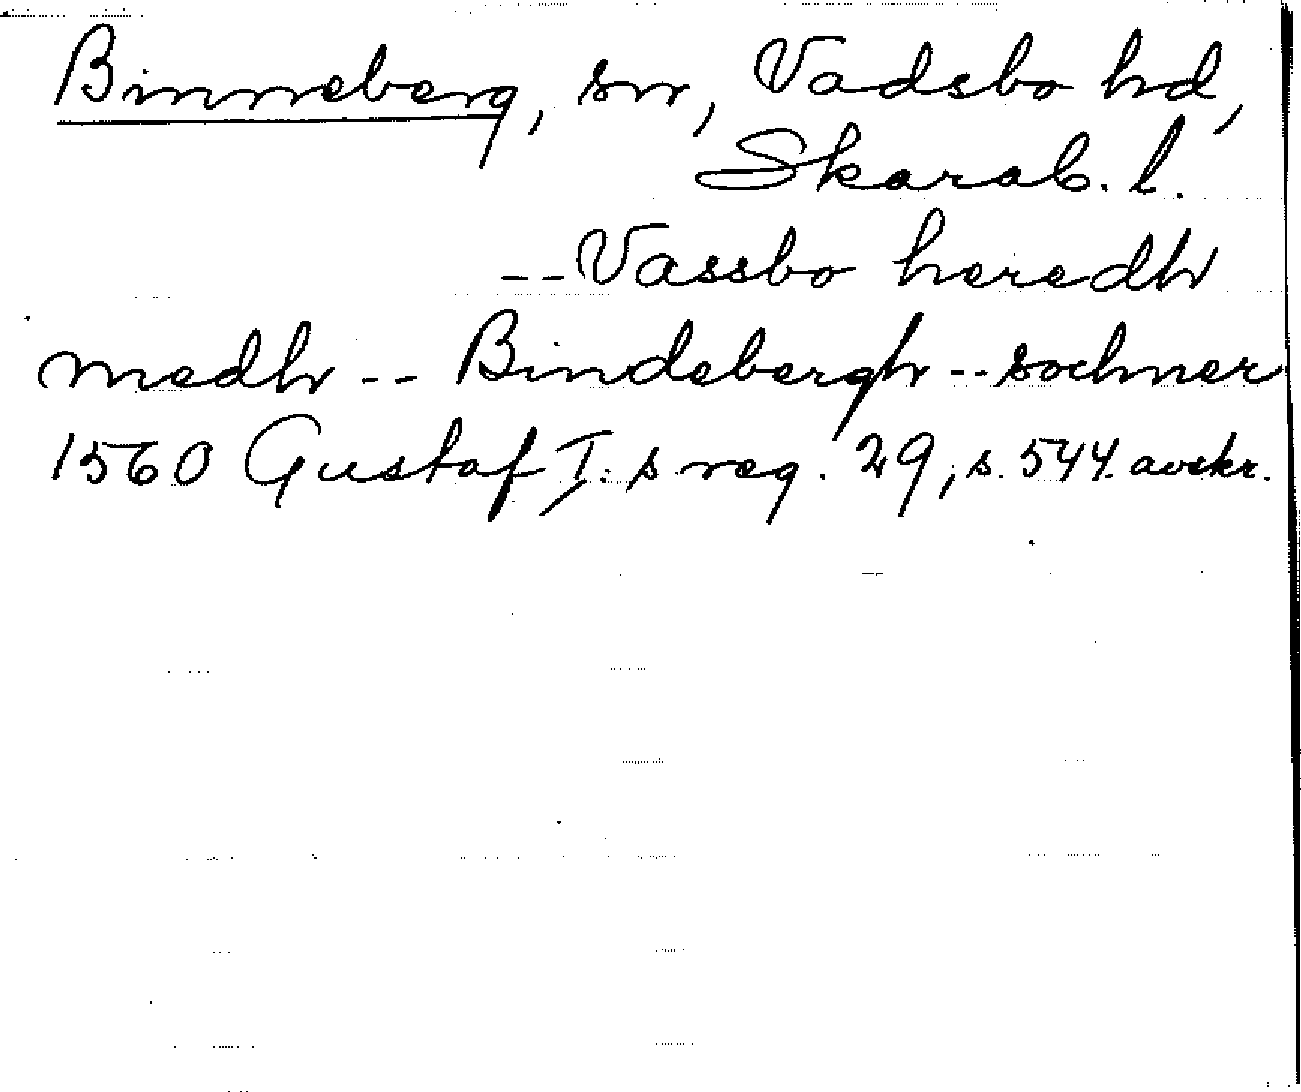 Binneberg, sn, Vadsbo hd,
Skarab. l.
-- Vassbo heredh
medh -- Bindebergh -- sochner
1560 Gustaf I:s reg. 29, s. 544. avskr.